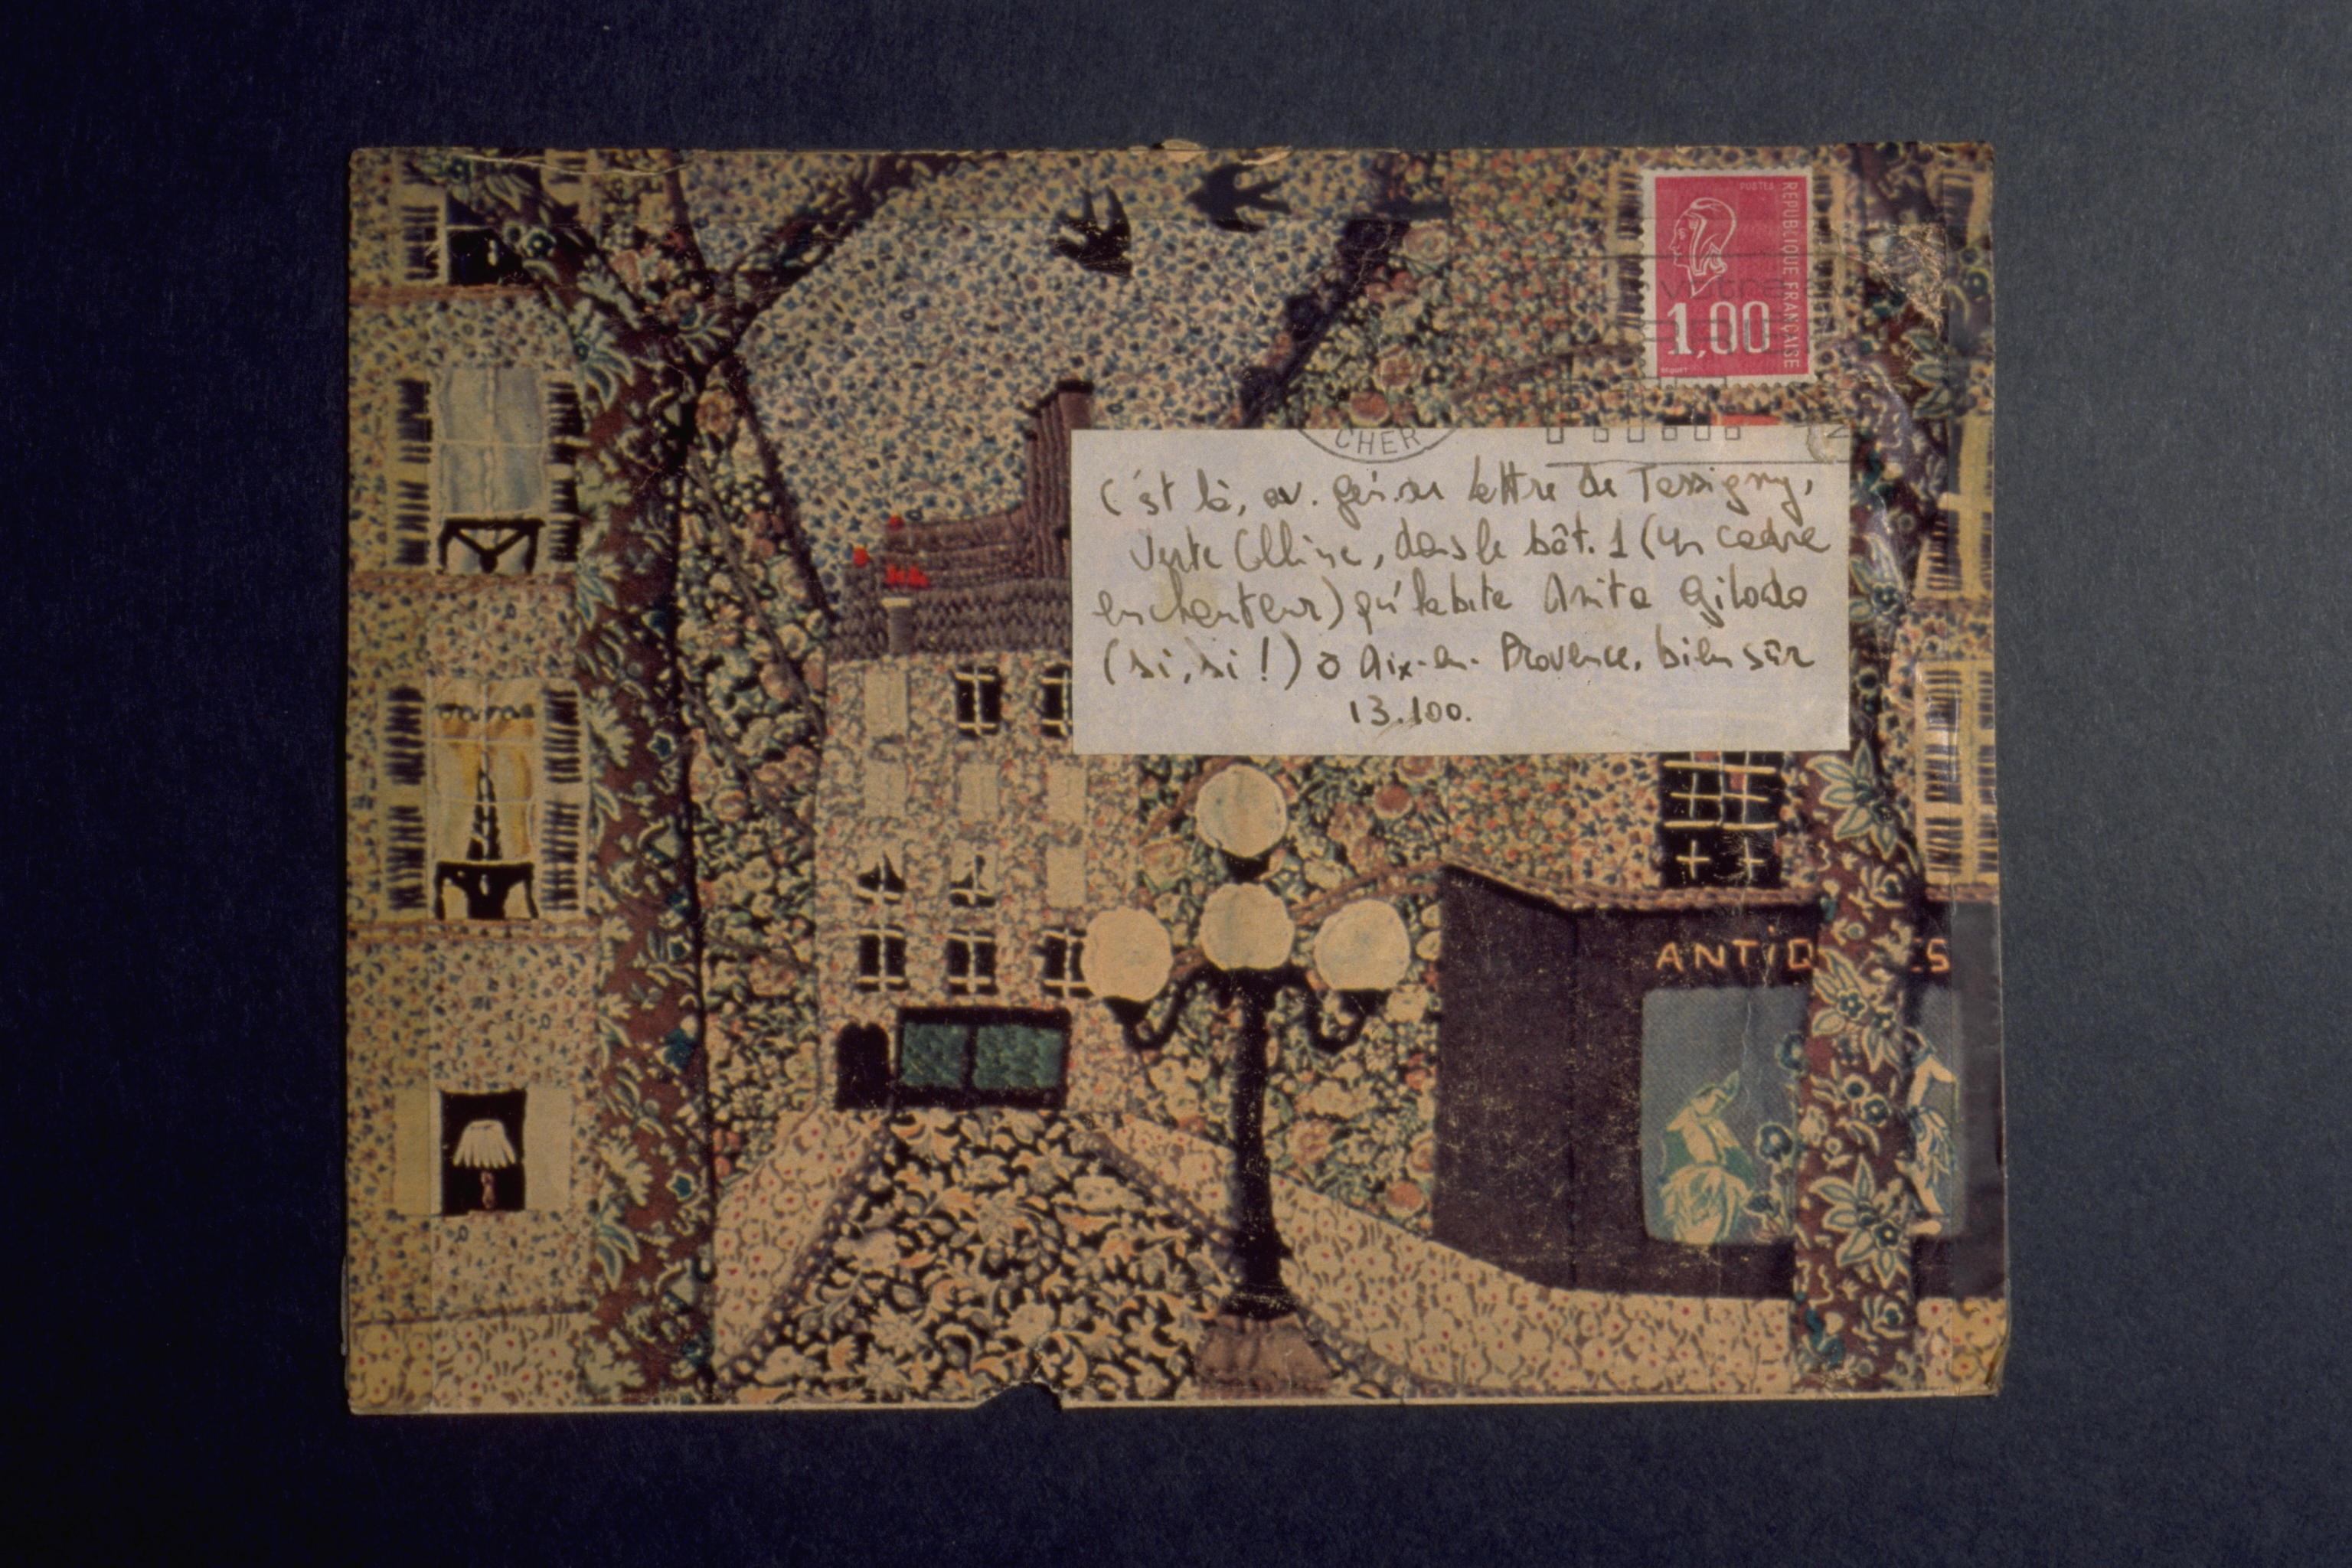 POSTES
REPUBLIQUE FRANÇAISE
1,00
CHER
C'est là, av. gén. de Lattre de Tassigny,
Verte Colline, dans le bât. 1 (un cadre
enchanteur) qu'habite Anita Gilodo
(si, si !) à Aix-en-Provence, bien sûr
13.100.
ANTiQ ES